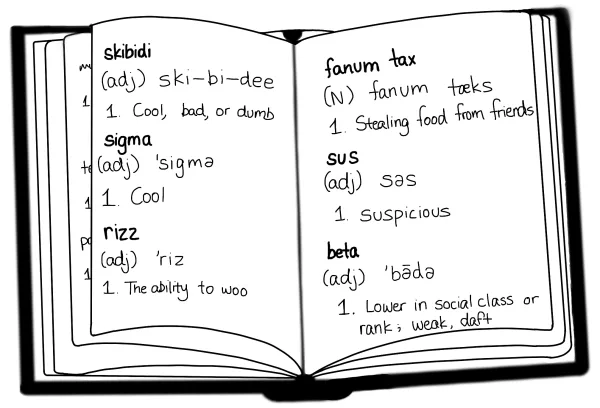 skibidi
(adj) ski-bi-dee
1. Cool, bad, or dumb
sigma
(adj) 'sigmə
1. Cool
rizz
(adj) 'riz
1. The ability to woo
fanum tax
(N) fanum tæks
1. Stealing food from friends
sus
(adj) səs
1. suspicious
beta
(adj) 'bādə
1. Lower in social class or
rank; weak, daft